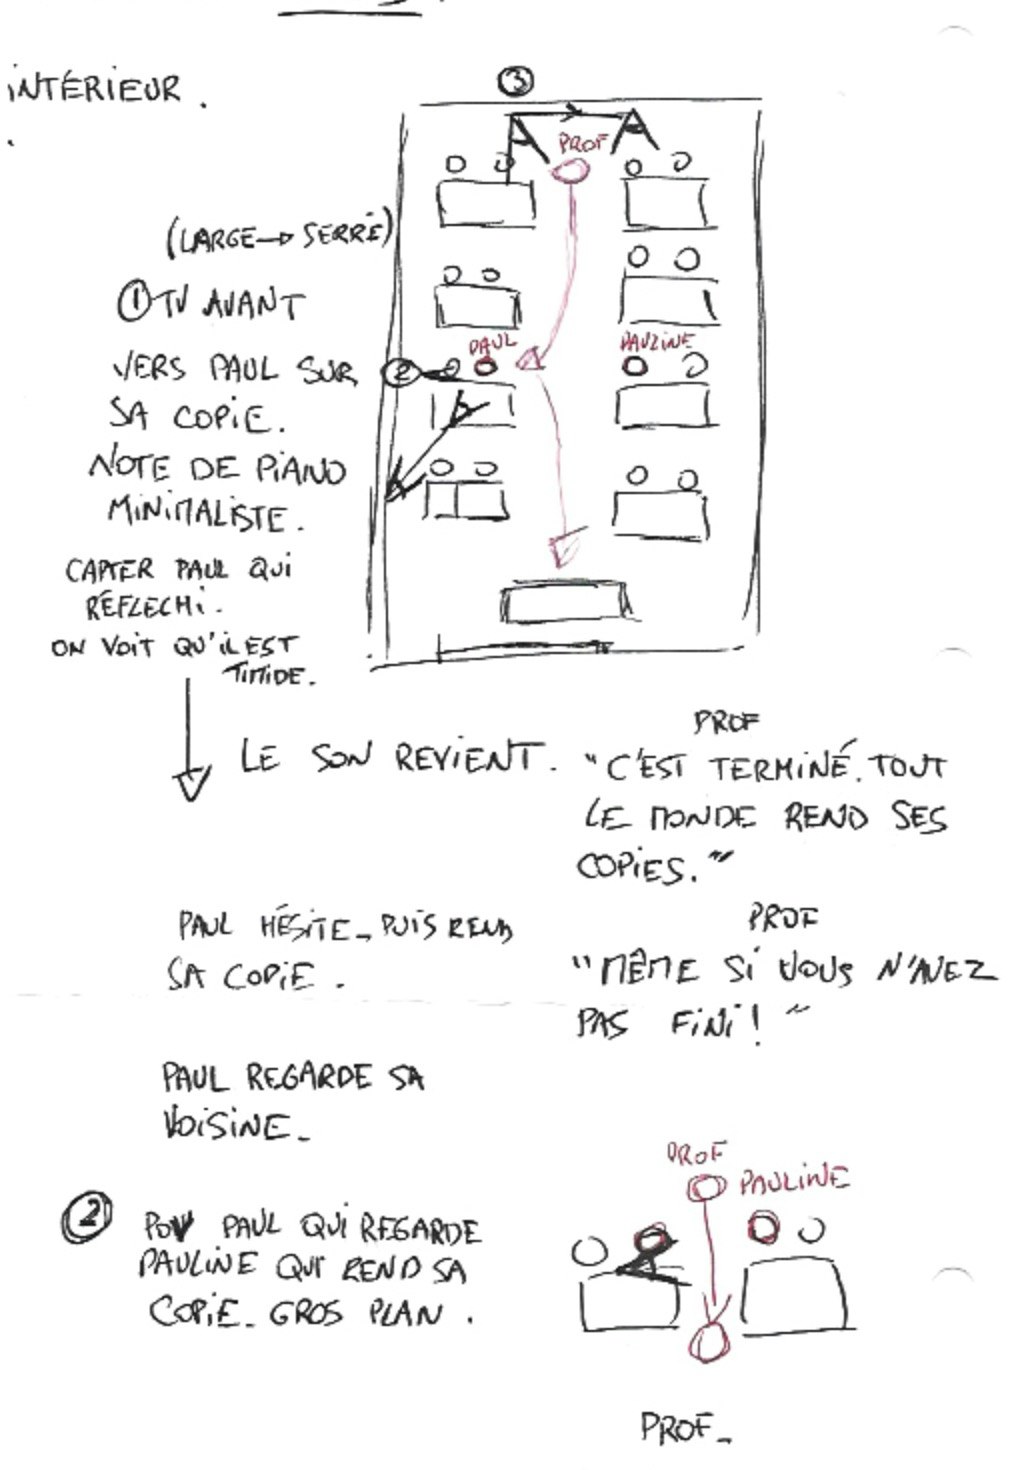 INTÉRIEUR.
③
PROF
(LARGE → SERRÉ)
① TV AVANT
PAUL
PAULINE
VERS PAUL SUR
②
SA COPIE.
NOTE DE PIANO
MINIMALISTE.
CAPTER PAUL QUI
RÉFLECHI.
ON VOIT QU'IL EST
TIMIDE.
PROF
LE SON REVIENT.
"C'EST TERMINÉ. TOUT
LE MONDE REND SES
COPIES."
PAUL HÉSITE_ PUIS REND
SA COPIE.
PROF
"MÊME SI VOUS N'AVEZ
PAS FINI!"
PAUL REGARDE SA
VOISINE_
PROF
PAULINE
② POV PAUL QUI REGARDE
PAULINE QUI REND SA
COPIE_ GROS PLAN.
PROF_